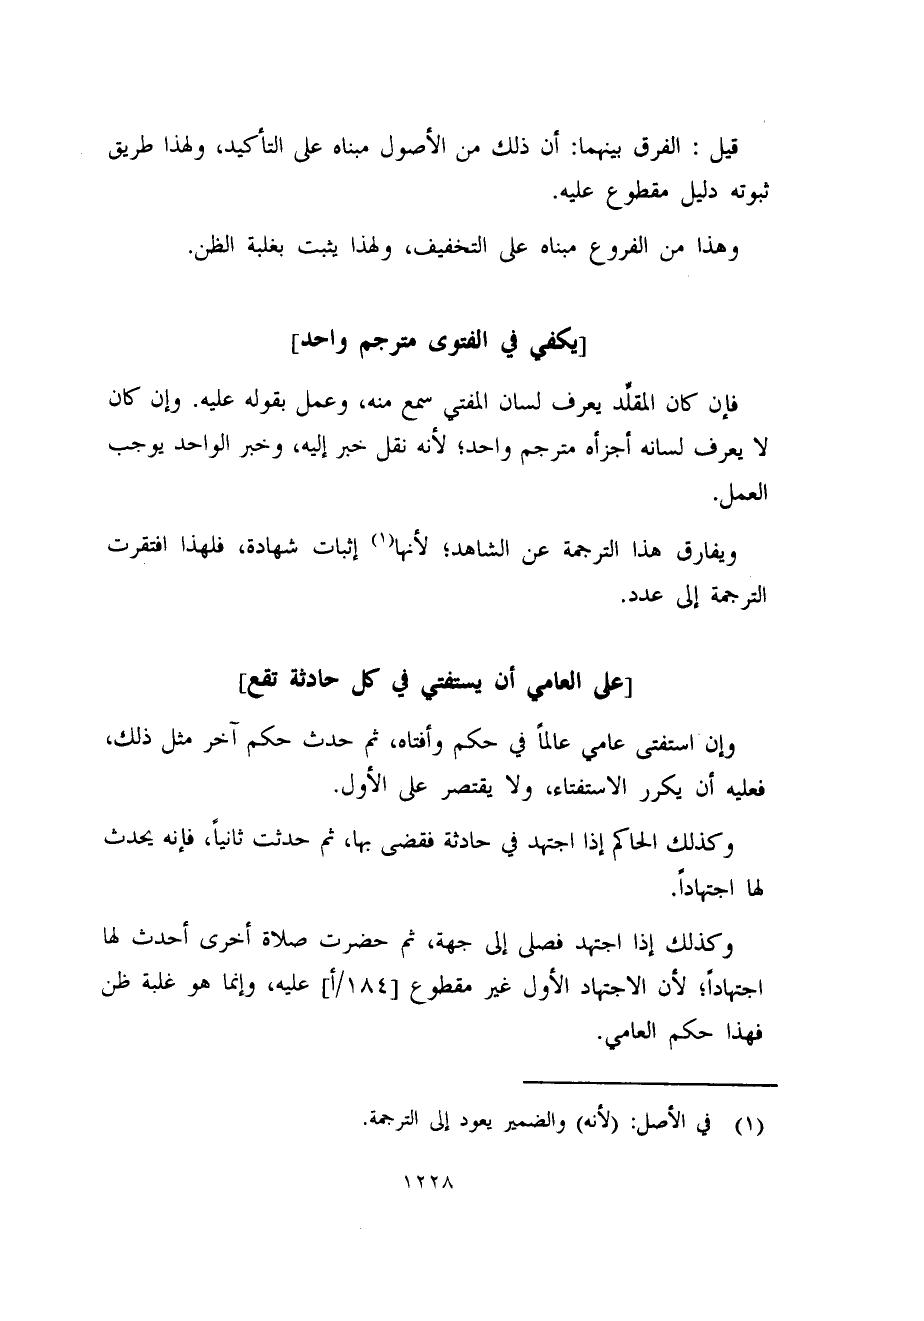 قيل : الفرق بينهما: أن ذلك من الأصول مبناه على التأكيد، ولهذا طريق
ثبوته دليل مقطوع عليه.
وهذا من الفروع مبناه على التخفيف، ولهذا يثبت بغلبة الظن.
[يكفي في الفتوى مترجم واحد]
فإن كان المقلِّد يعرف لسان المفتي سمع منه، وعمل بقوله عليه. وإن كان
لا يعرف لسانه أجزأه مترجم واحد؛ لأنه نقل خبر إليه، وخبر الواحد يوجب
العمل.
ويفارق هذا الترجمة عن الشاهد؛ لأنها(١) إثبات شهادة، فلهذا افتقرت
الترجمة إلى عدد.
[على العامي أن يستفتي في كل حادثة تقع]
وإن استفتى عامي عالماً في حكم وأفتاه، ثم حدث حكم آخر مثل ذلك،
فعليه أن يكرر الاستفتاء، ولا يقتصر على الأول.
وكذلك الحاكم إذا اجتهد في حادثة فقضى بها، ثم حدثت ثانياً، فإنه يحدث
لها اجتهاداً.
وكذلك إذا اجتهد فصلى إلى جهة، ثم حضرت صلاة أخرى أحدث لها
اجتهاداً؛ لأن الاجتهاد الأول غير مقطوع [١٨٤/أ] عليه، وإنما هو غلبة ظن
فهذا حكم العامي.
(١) في الأصل: (لأنه) والضمير يعود إلى الترجمة.
١٢٢٨